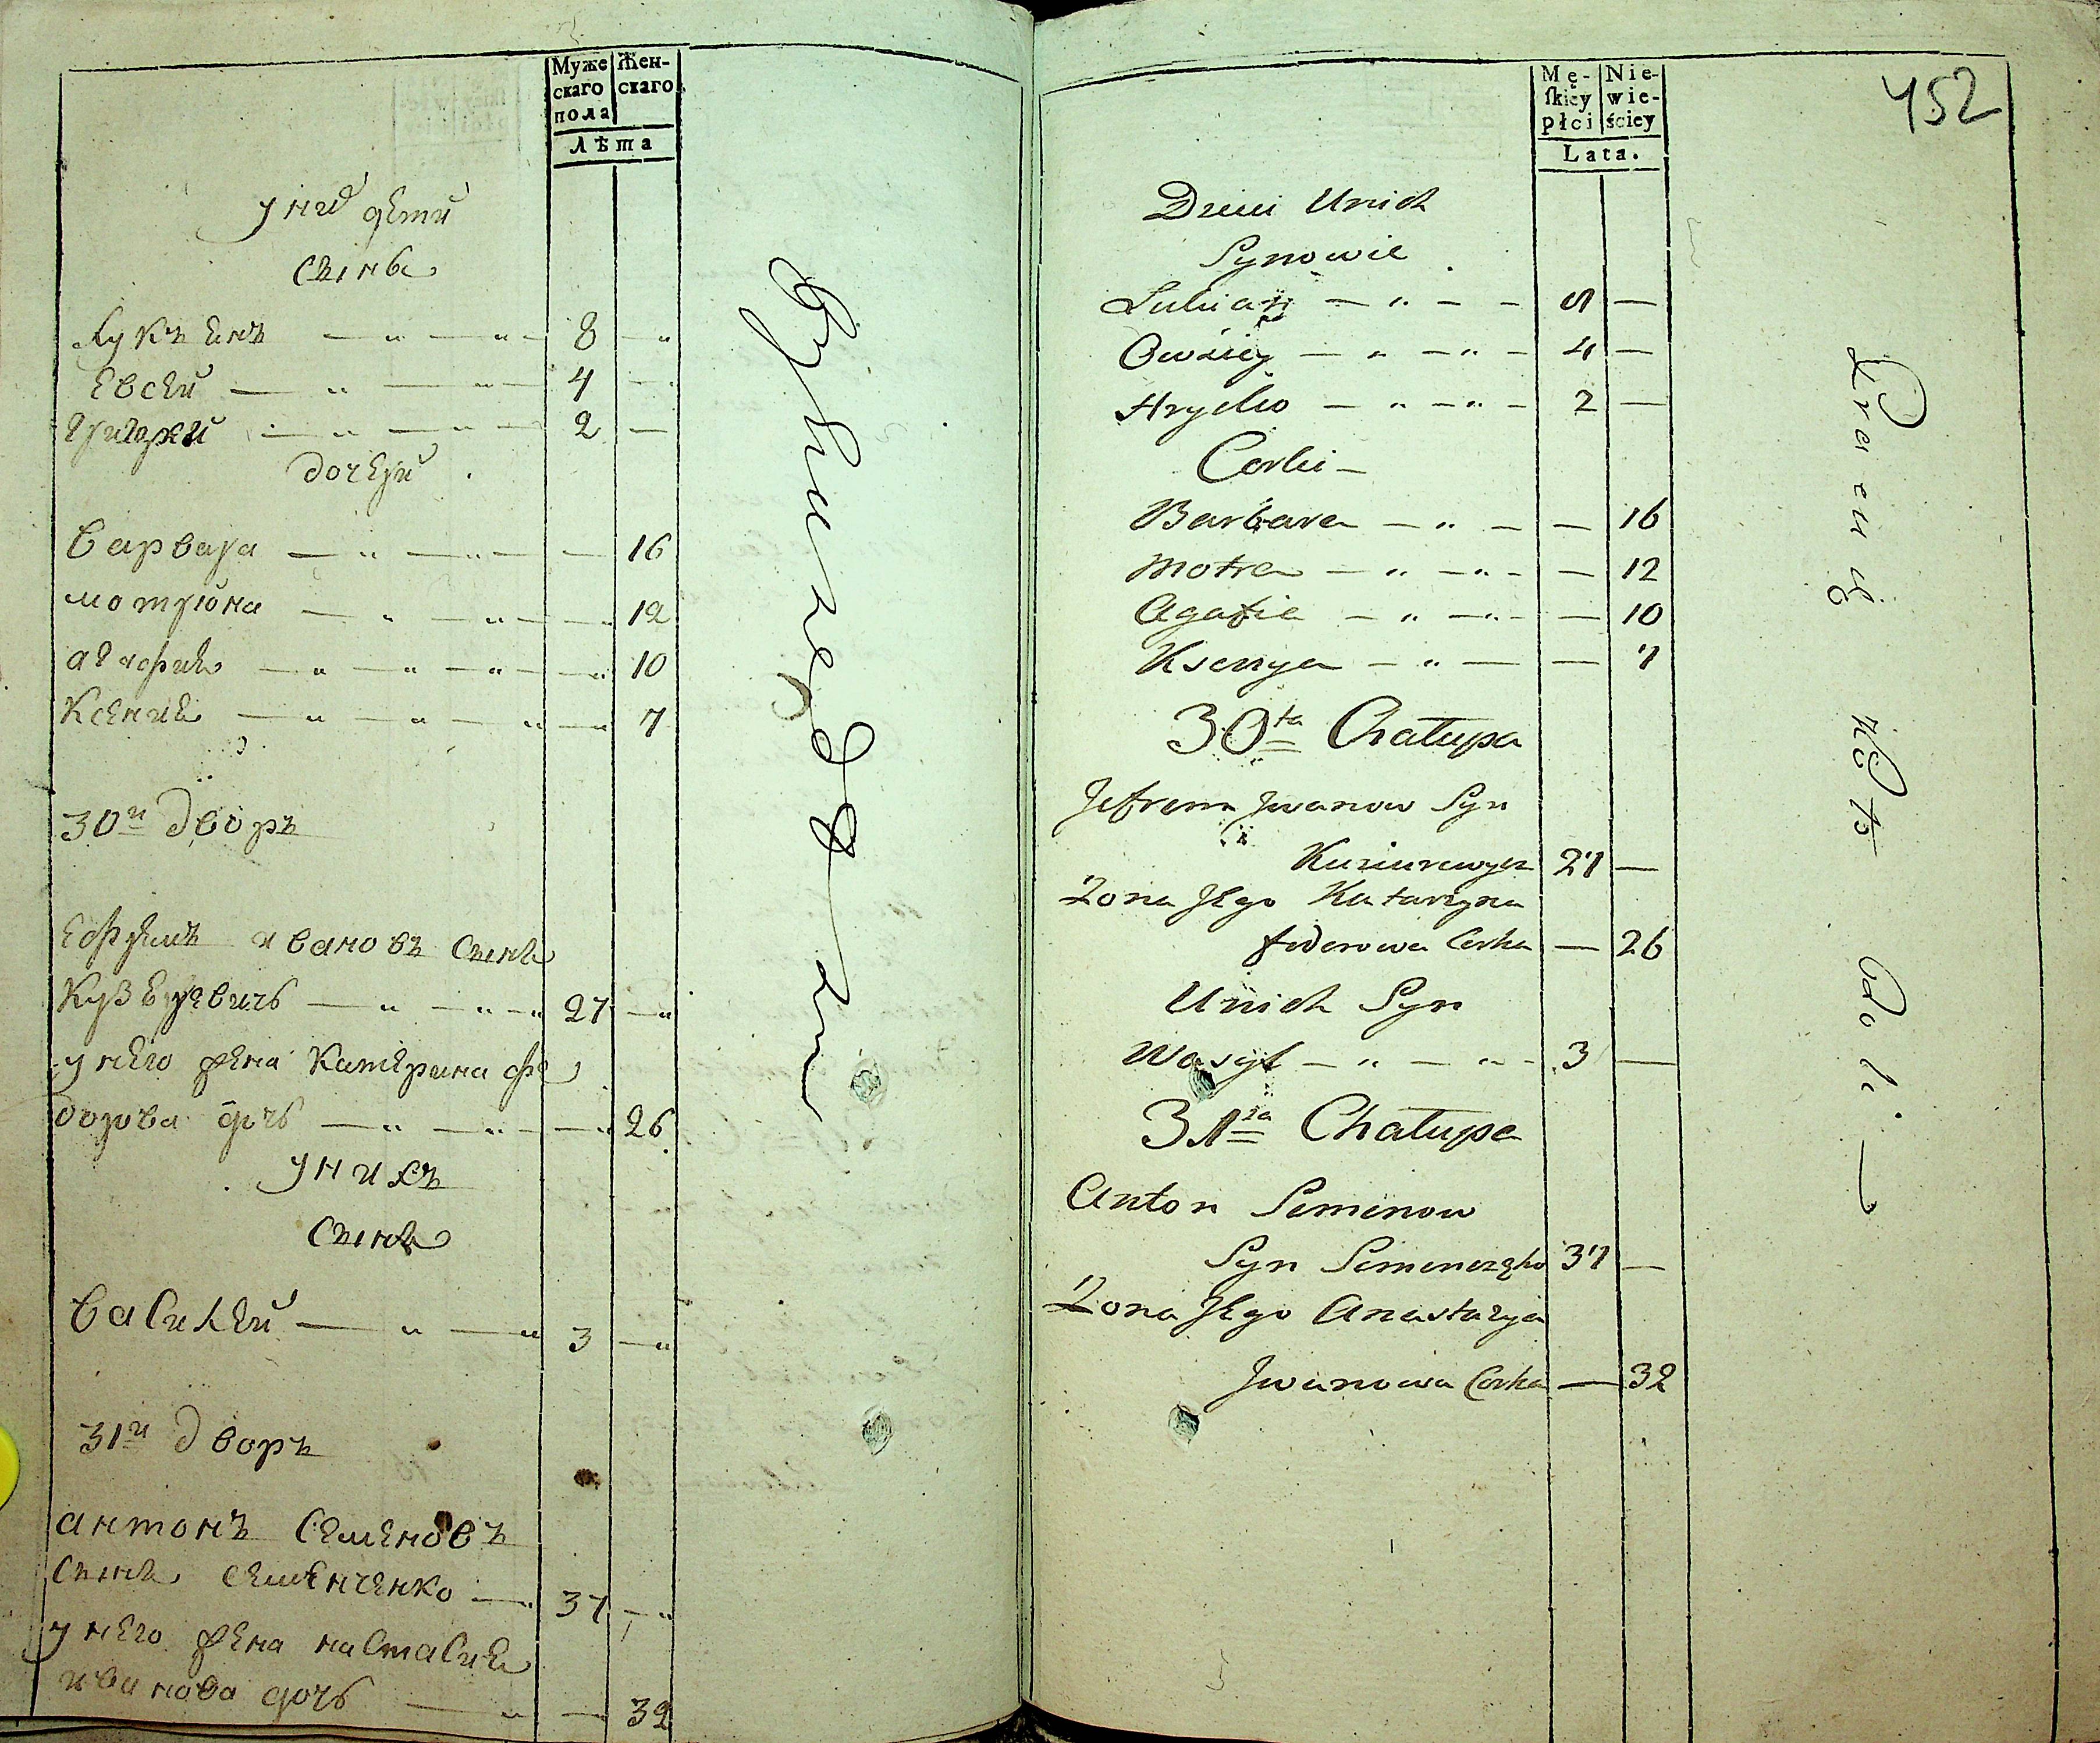 Муже
скаго
пола
Жен-
скаго
Лѣта
у них дети
сынь
лукъянъ — „ — „ — 8 — „
евсей — „ — „ — 4 — „
григорий — „ — „ — 2 —
дочери
варвара — „ — „ — — 16
мотрюна — „ — „ — — 12
агафия — „ — „ — „ — „ 10
Ксения — „ — „ — „ — „ 7
30й дворъ
ефремъ ивановъ сынъ
— „ — „ — „ 27 — „
у него жена катерина фе
дорова дочь — „ — „ — — „ 26
у нихъ
сынъ
василей — „ — „ 3 — „
31й дворъ
антонъ семеновъ
сынъ семенченко — 37 — „
у него жена настасия
иванова дочь — „ — 32
Mę-
ſkiey
płci
Nie-
wie-
ściey
Lata.
452
Dzieci Unich
Synowie
Lukian — „ — — 9 —
Owsiey — „ — „ — 4 —
Hryćko — „ — „ — 2 —
Corki —
Barbara — „ — — 16
Motra — „ — „ — — 12
Agafia — „ — „ — — 10
Ksenya — „ — — 7
30ta Chałupa
Jefrem Jwanow Syn
27 —
Żona Jego Katarzyna
fedorowa Corka — 26
Unich Syn
Wasyl — „ — „ — 3 —
31sza Chałupa
Anton Semenow
Syn Semenczęko 37 —
Żona Jego Anastazya
Jwanowa Corka — 32